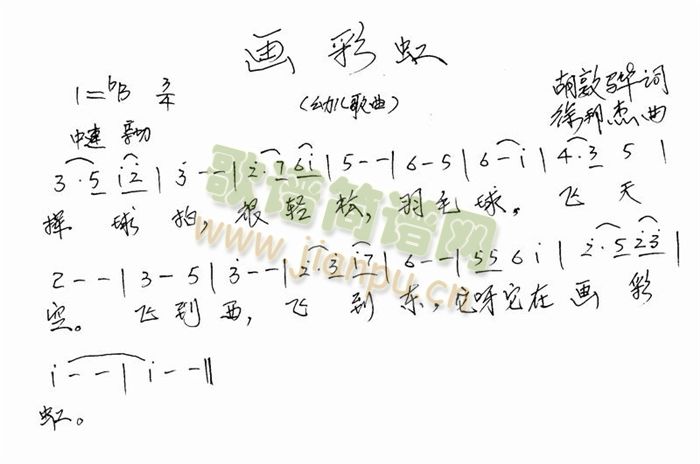 画彩虹
(幼儿歌曲)
1=♭B 3/4
胡敦骅词
徐邦杰曲
中速
3·5 i2 | 3 - - | 2·7 6i | 5 - - | 6 - 5 | 6 - i | 4·3 5 |
挥 球 拍, 很 轻 松, 羽 毛 球, 飞 天
2 - - | 3 - 5 | 3 - - | 2·3 i7 | 6 - - | 55 6 i | 2·5 23 |
空。 飞 到 西, 飞 到 东, 它呀它在 画 彩
i - - | i - - ‖
虹。
歌谱简谱网
www.jianpu.cn